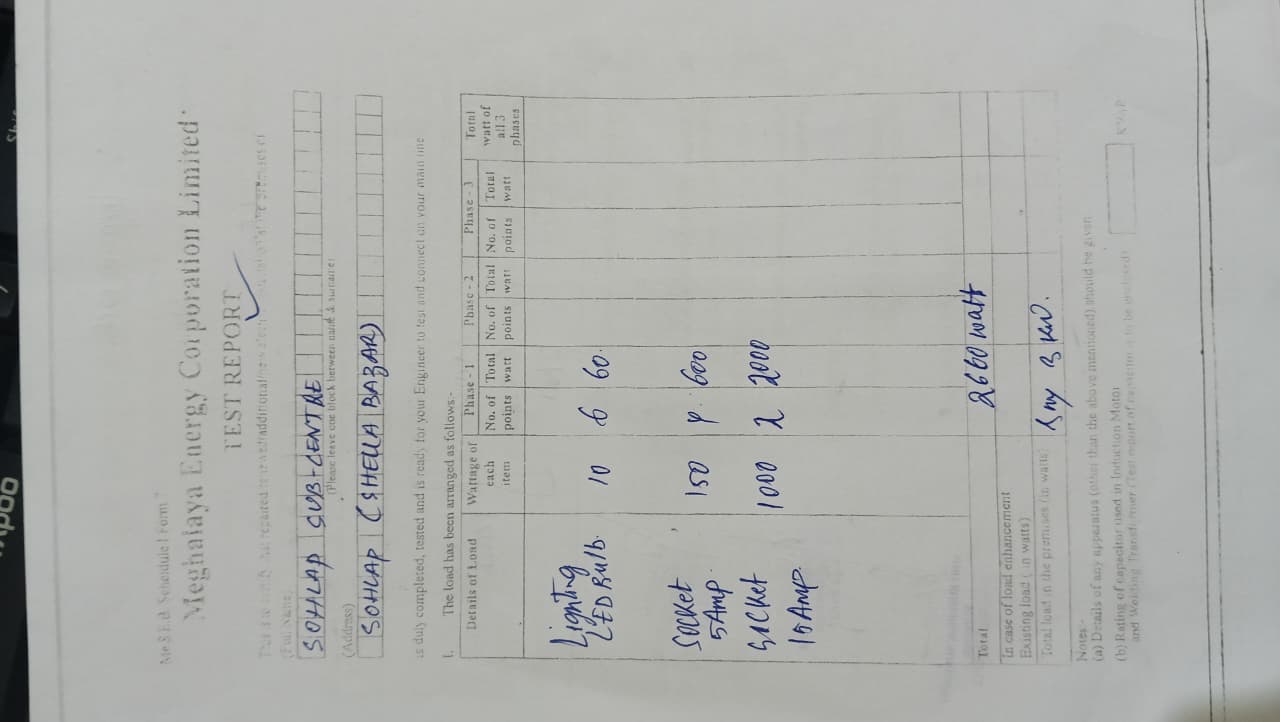 Meghalaya Energy Corporation Limited
TEST REPORT
SOHLAP SUB-CENTRE
(Please leave one block between name & surname)
(Address)
SOHLAP (SHELLA BAZAR)
is duly completed, tested and is ready for your Engineer to test and connect on your main line
1. The load has been arranged as follows:-
Details of Load Wattage of each item Phase - 1 Phase - 2 Phase - 3 Total watt of all 3 phases
No. of points Total watt No. of points Total watt No. of points Total watt
Lighting
LED Bulb. 10 6 60.
Socket 150 4. 600
5 Amp.
Socket 1000 2 2000
15 Amp.
Total 2660 watt
In case of load enhancement
Existing load (in watts)
Total load in the premises (in watts) Say 3 kW.
Notes:-
(a) Details of any apparatus (other than the above mentioned) should be given
(b) Rating of capacitor used in Induction Motor KVAR
and Welding Transformer (Test report of capacitor to be enclosed)